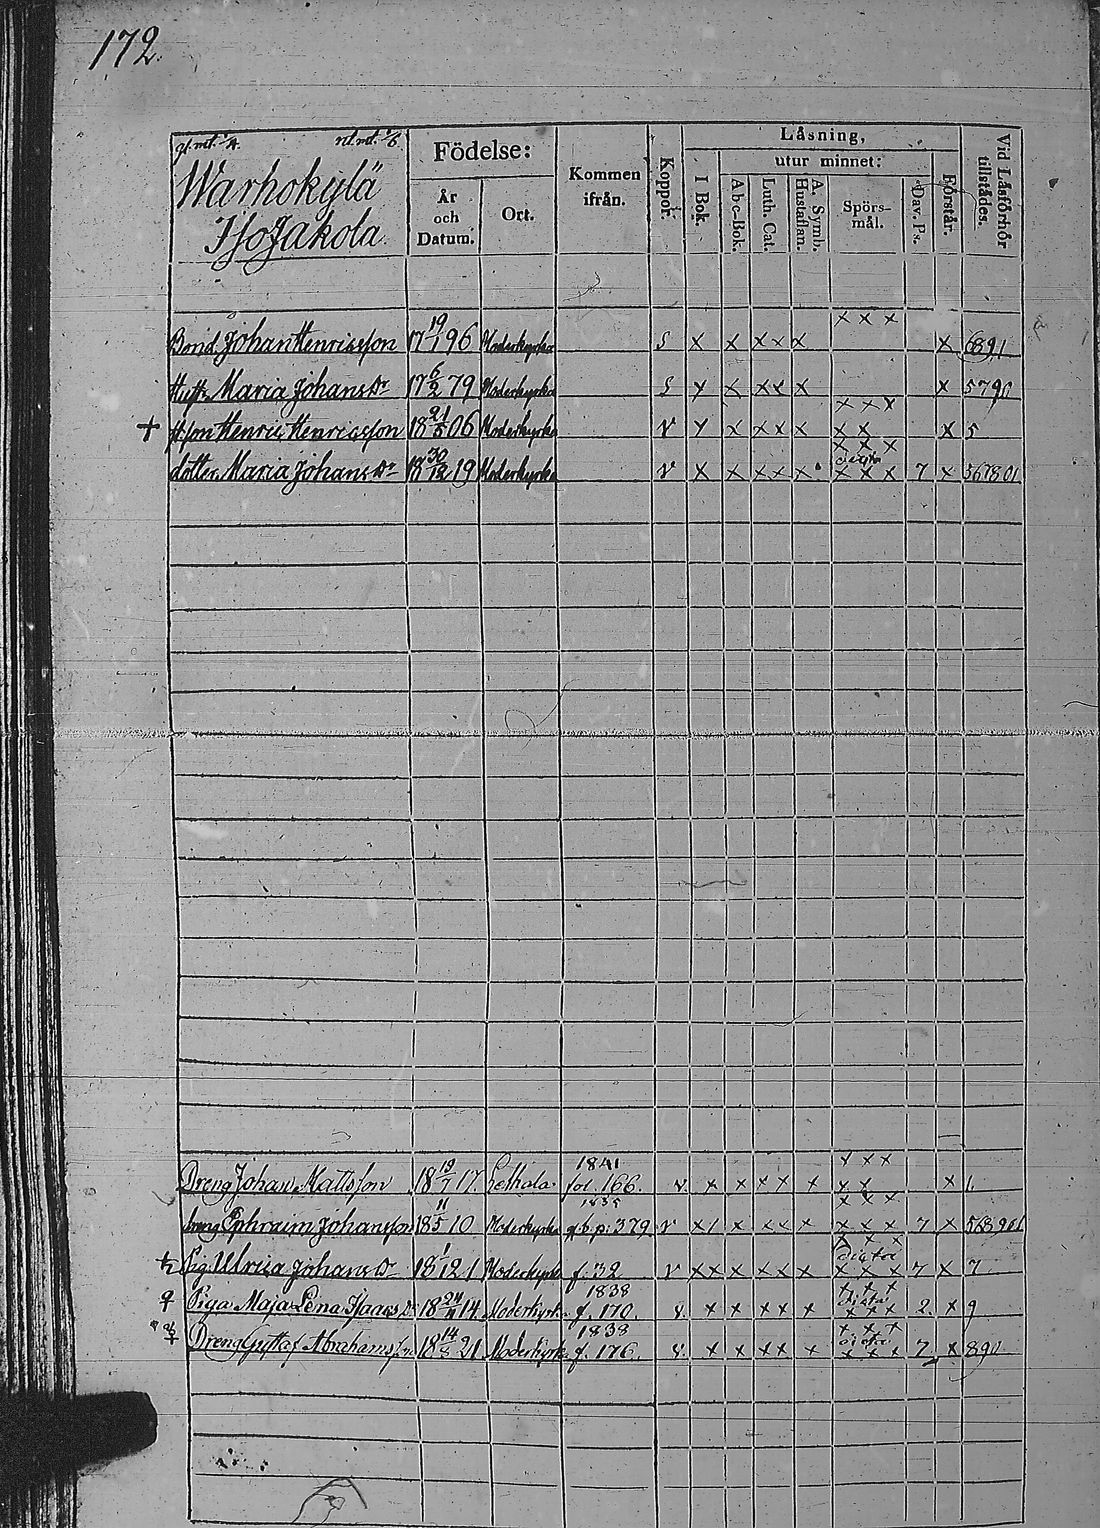 172.
Warhokylä
IsoJakola
Födelse:
År
och
Datum.
Ort.
Kommen
ifrån.
Koppor.
Läsning,
I Bok.
utur minnet:
A b c-Bok.
Luth. Cat.
A. Symb.
Hustaflan.
Spörs-
mål.
Dav. Ps.
Förstår.
Vid Läsförhör
tillstädes.
x x x
Bond. Johan Henricsson 17 19/1 96 Moderkyrka S x x x x x x 6891
Hust. Maria Johans Dr 17 6/2 79 Moderkyrka S x x x x x x 5790
x x x
Henric Henricsson 18 21/5 06 Moderkyrka V x x x x x x x x 5
x x x
dotter Maria Johans Dr 18 30/12 19 Moderkyrka V x x x x x x x x 7 x 367801
1841 x x x
Dreng Johan Mattsson 18 19/7 17 Lethala fol. 166. v x x x x x x x x 1
x x x
dreng Ephraim Johansson 18 11/5 10 Moderkyrka g. b. p. 379. V x 1 x x x x x x x 7 x
x x x
Pig. Ulrica Johans Dr 18 1/12 1 Moderkyrka f. 32 V x x x x x x x x x x 7 x 7
1838
Piga Maja Lena Isaacs Dr 18 14 Moderkyrka f. 170. v x x x x x x x x 2 x 9
1838 x x x
Dreng Gustaf Abrahamsson 18 21 Moderkyrka f. 176. v x x x x x x x x 7 x 890